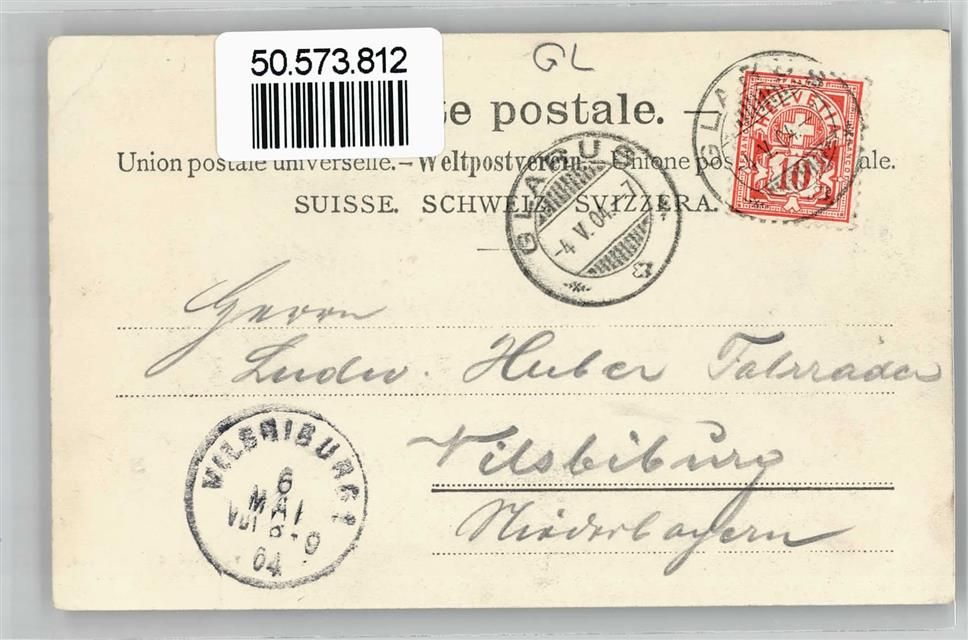 50.573.812
GL
te postale.
Union postale universelle. – Weltpostverein. – Unione pos ale.
SUISSE. SCHWEIZ. SVIZZERA.
GLARUS
HELVETIA
10
GLARUS
-4.V.04.-7
Herrn
Ludw. Huber Fahrräder
Vilsbiburg
Niederbayern
VILSBIBURG 1
6
MAI
VOR 8-9
04